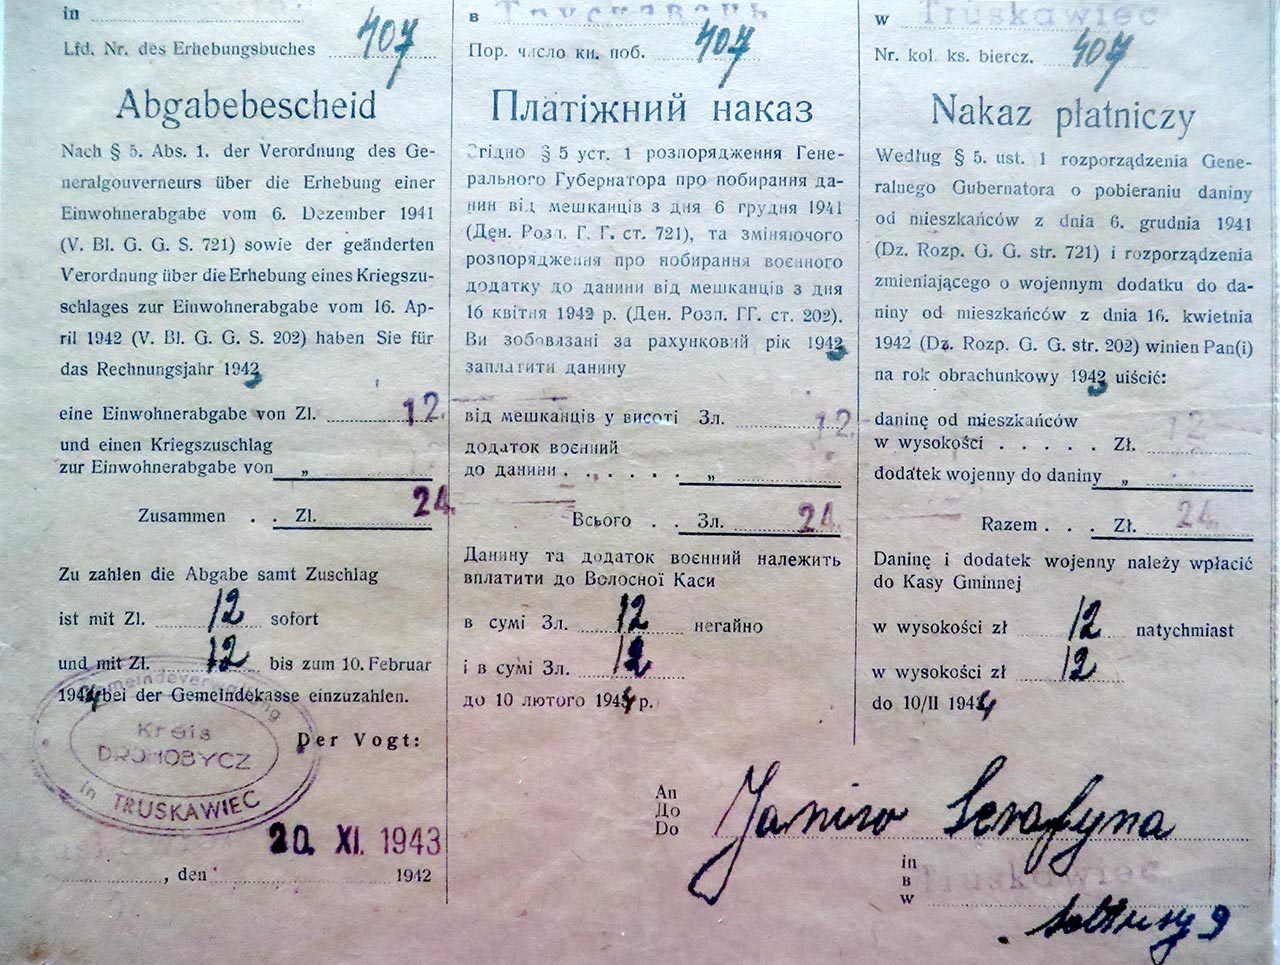 in
Lfd. Nr. des Erhebungsbuches 407
Abgabebescheid
Nach § 5. Abs. 1. der Verordnung des Ge-
neralgouverneurs über die Erhebung einer
Einwohnerabgabe vom 6. Dezember 1941
(V. Bl. G. G. S. 721) sowie der geänderten
Verordnung über die Erhebung eines Kriegszu-
schlages zur Einwohnerabgabe vom 16. Ap-
ril 1942 (V. Bl. G. G. S. 202) haben Sie für
das Rechnungsjahr 1943
eine Einwohnerabgabe von Zl. 12.
und einen Kriegszuschlag
zur Einwohnerabgabe von „
Zusammen . . Zl. 24.
Zu zahlen die Abgabe samt Zuschlag
ist mit Zl. 12 sofort
und mit Zl. 12 bis zum 10. Februar
1944 bei der Gemeindekasse einzuzahlen.
Gemeindeverwaltung
Kreis
DROHOBYCZ
in TRUSKAWIEC
Der Vogt:
20. XI. 1943
, den 1942
в Трускавець
Пор. число кн. поб. 407
Платіжний наказ
Згідно § 5 уст. 1 розпорядження Гене-
рального Губернатора про побирання да-
нин від мешканців з дня 6 грудня 1941
(Ден. Розп. Г. Г. ст. 721), та зміняючого
розпорядження про побирання воєнного
додатку до данини від мешканців з дня
16 квітня 1942 р. (Ден. Розп. ГГ. ст. 202).
Ви зобовязані за рахунковий рік 1943
заплатити данину
від мешканців у висоті Зл. 12.
додаток воєнний
до данини . . . . . . „
Всього . . Зл. 24.
Данину та додаток воєнний належить
вплатити до Волосної Каси
в сумі Зл. 12 негайно
і в сумі Зл. 12
до 10 лютого 1944 р.
w Truskawiec
Nr. kol. ks. biercz. 407
Nakaz płatniczy
Według § 5. ust. 1 rozporządzenia Gene-
ralnego Gubernatora o pobieraniu daniny
od mieszkańców z dnia 6. grudnia 1941
(Dz. Rozp. G. G. str. 721) i rozporządzenia
zmieniającego o wojennym dodatku do da-
niny od mieszkańców z dnia 16. kwietnia
1942 (Dz. Rozp. G. G. str. 202) winien Pan(i)
na rok obrachunkowy 1943 uiścić:
daninę od mieszkańców
w wysokości . . . . . Zł. 12
dodatek wojenny do daniny „
Razem . . . Zł. 24.
Daninę i dodatek wojenny należy wpłacić
do Kasy Gminnej
w wysokości zł 12 natychmiast
w wysokości zł 12
do 10/II 1944
An
До
Do
Serafyna
in
в
w
Truskawiec
9